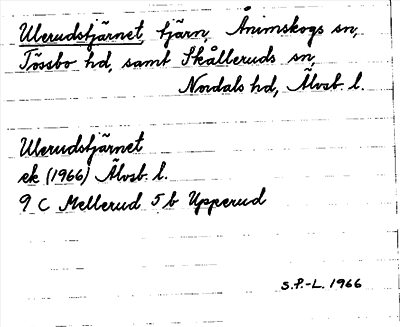 Ulerudstjärnet, tjärn, Ånimskogs sn,
Tössbo hd, samt Skålleruds sn,
Nordals hd, Älvsb. l.
Ulerudstjärnet
ek (1966) Älvsb. l.
9 C Mellerud 5 b Upperud
S.P.-L. 1966